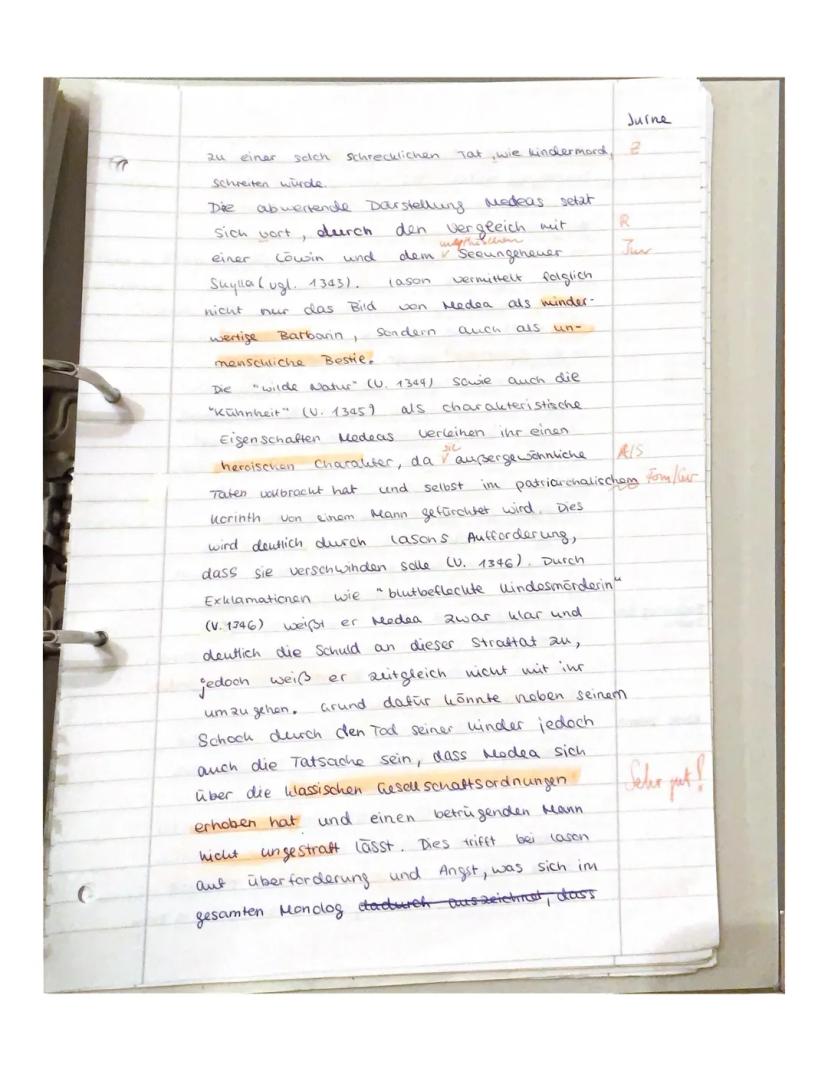 Jurne
zu einer solch schrecklichen Tat, wie Kindermord, Z
schreiten würde.
Die abwertende Darstellung Medeas setzt
sich vort, durch den Vergleich mit R
mythischen
einer Löwin und dem Seeungeheuer
Skylla (vgl. 1343). Iason vermittelt folglich
nicht nur das Bild von Medea als minder-
wertige Barbarin, sondern auch als un-
menschliche Bestie.
Die "wilde Natur" (V. 1344) sowie auch die
"Kühnheit" (V. 1345) als charakteristische
Eigenschaften Medeas verleihen ihr einen
sie
heroischen Charakter, da außergewöhnliche A/S
Taten vollbracht hat und selbst im patriarchalischem
Korinth von einem Mann gefürchtet wird. Dies
wird deutlich durch Iasons Aufforderung,
dass sie verschwinden solle (V. 1346). Durch
Exklamationen wie "blutbefleckte Kindesmörderin"
(V. 1346) weißt er Medea zwar klar und
deutlich die Schuld an dieser Straftat zu,
jedoch weiß er zeitgleich nicht mit ihr
umzugehen. Grund dafür könnte neben seinem
Schock durch den Tod seiner Kinder jedoch
auch die Tatsache sein, dass Medea sich
über die klassischen Gesellschaftsordnungen Sehr gut!
erhoben hat und einen betrügenden Mann
nicht ungestraft lässt. Dies trifft bei Iason
auf Überforderung und Angst, was sich im
gesamten Monolog dadurch auszeichnet, dass